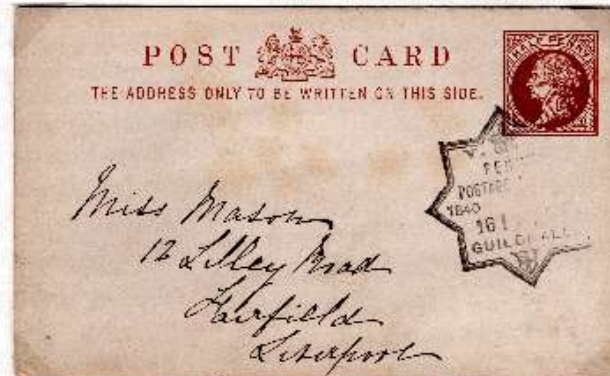 POST CARD
THE ADDRESS ONLY TO BE WRITTEN ON THIS SIDE.
HALF PENNY
POSTAGE
1840
16
GUILDHALL
Miss Mason
12 Lilley Road
Fairfield
Liverpool